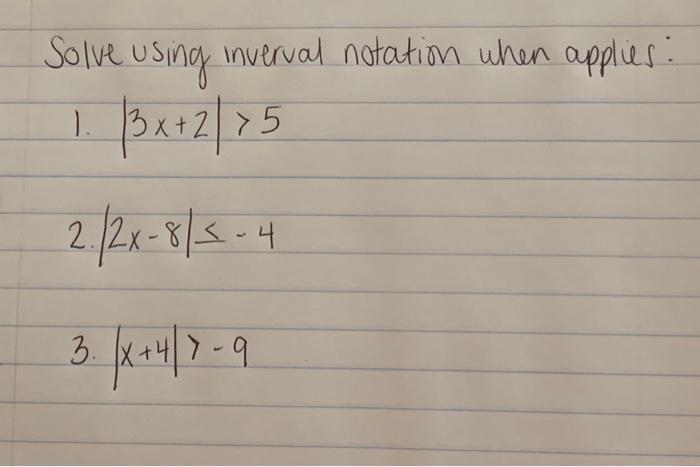 Solve using inverval notation when applies:
1. |3x+2| > 5
2. |2x-8| ≤ -4
3. |x+4| > -9